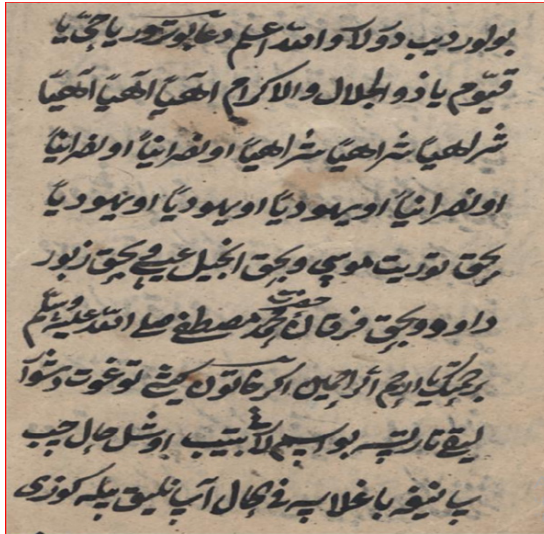 بولور دیب دولار واللّه اعلم دعا بوتورور یا حیّ یا
قیّوم یا ذو الجلال والاکرام اهیّاً اهیّاً اهیّاً
شراهیّاً شراهیّاً شراهیّاً او نصرانیّاً او نصرانیّاً
او نصرانیّاً او یهودیّاً او یهودیّاً او یهودیّاً
بحق توریت موسی و بحق انجیل عیسی بحق زبور
داود و بحق فرقان حضرت محمد مصطفی صلی اللّه علیه وسلّم
برحمتک یا ارحم الراحمین اگر خاتون کیشی توغوت دشوا
لیقی تارتسه بو اسیم بیتیب اوشل حال چپ
یانیغه باغلاسه فی الحال آسانلیق بیله کوزی